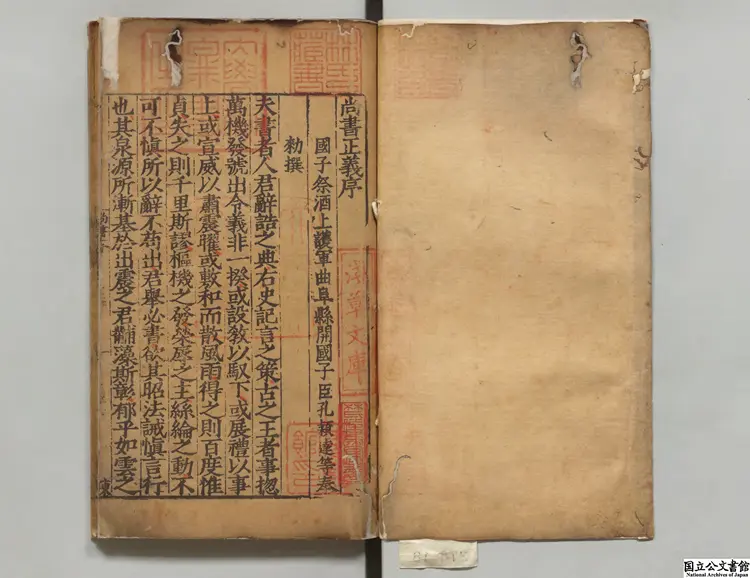 尚書正義序
國子祭酒上護軍曲阜縣開國子臣孔穎達等奉
勑撰
夫書者人君辭誥之典右史記言之策古之王者事揔
萬機發號出令義非一揆或設教以馭下或展禮以事
上或宣威以肅震曜或敷和而散風雨得之則百度惟
貞失之則千里斯謬樞機之發榮辱之主絲綸之動不
可不慎所以辭不苟出君舉必書欲其昭法誡慎言行
也其泉源所漸基於出震之君黼藻斯彰郁乎如雲之
文庫
国立公文書館
National Archives of Japan